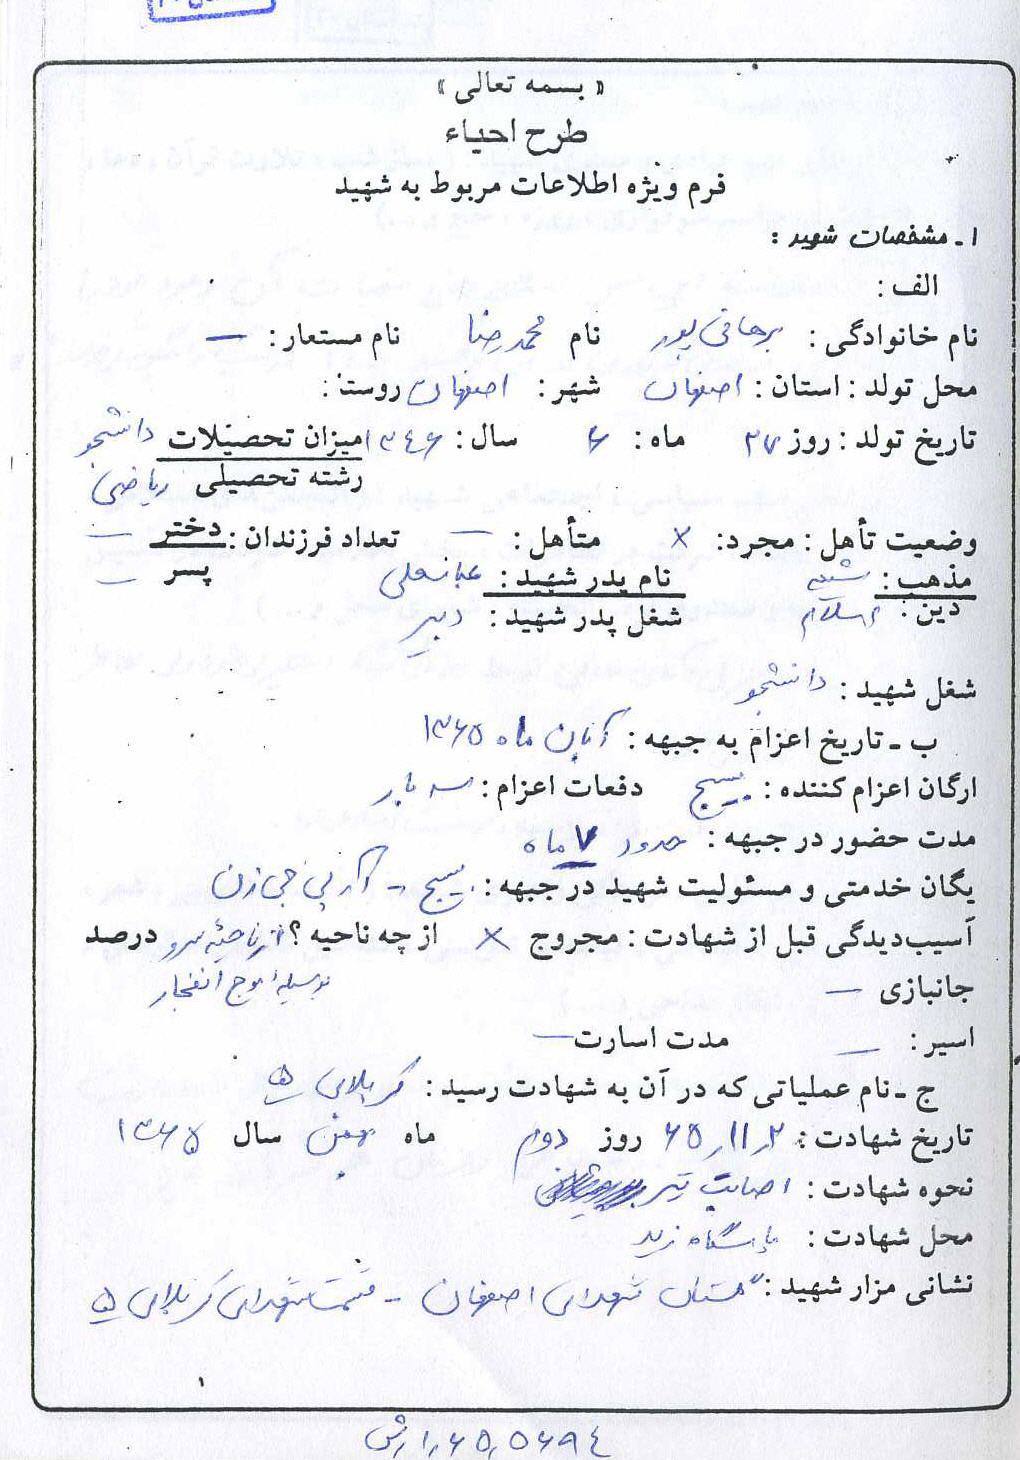 « بسمه تعالی »
طرح احیاء
فرم ویژه اطلاعات مربوط به شهید
۱ـ مشخصات شهید :
الف :
نام خانوادگی : برهانی پور نام محمدرضا نام مستعار : —
محل تولد : استان : اصفهان شهر : اصفهان روستا :
تاریخ تولد : روز ۲۷ ماه : ۶ سال : ۱۳۴۶ میزان تحصیلات دانشجو
رشته تحصیلی ریاضی
وضعیت تأهل : مجرد : × متأهل : — تعداد فرزندان : دختر —
مذهب : شیعه نام پدر شهید : عباسعلی پسر —
دین : اسلام شغل پدر شهید : دبیر
شغل شهید : دانشجو
ب ـ تاریخ اعزام به جبهه : آبان ماه ۱۳۶۵
ارگان اعزام کننده : بسیج دفعات اعزام : سه بار
مدت حضور در جبهه : حدود ۷ ماه
یگان خدمتی و مسئولیت شهید در جبهه : بسیج - آر پی جی زن
آسیب‌دیدگی قبل از شهادت : مجروح × از چه ناحیه ؟ از ناحیه سر و درصد
جانبازی — بوسیله موج انفجار
اسیر : — مدت اسارت —
ج ـ نام عملیاتی که در آن به شهادت رسید : کربلای ۵
تاریخ شهادت : ۶۵/۱۱/۲ روز دوم ماه بهمن سال ۱۳۶۵
نحوه شهادت : اصابت تیر
محل شهادت : پاسگاه زید
نشانی مزار شهید : گلستان شهدای اصفهان - قسمت شهدای کربلای ۵